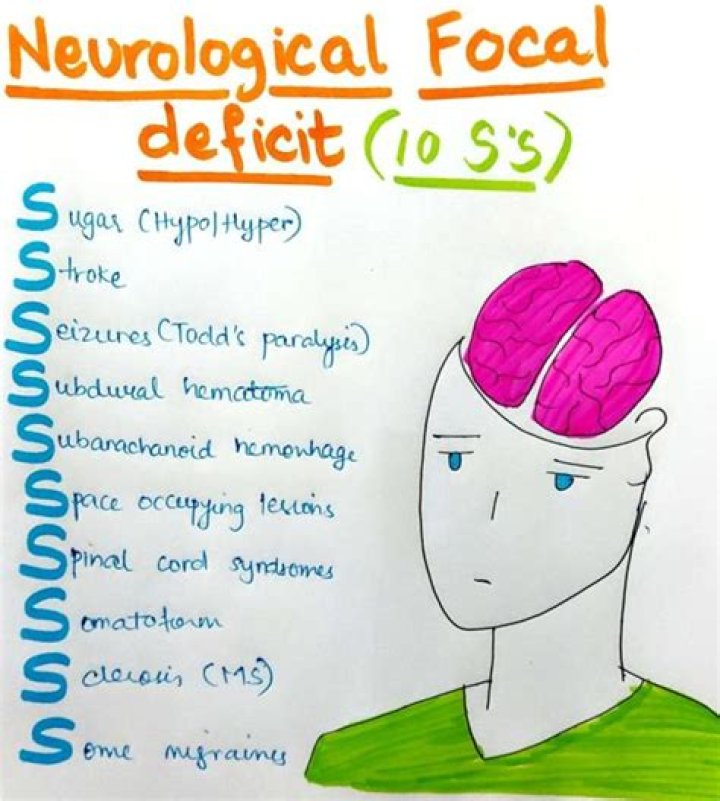 Neurological Focal
deficit (10 S's)
Sugar (Hypo/Hyper)
Stroke
Seizures (Todd's paralysis)
Subdural hematoma
Subarachanoid hemorrhage
Space occupying lesions
Spinal cord syndromes
Somatoform
Sclerosis (MS)
Some migraines